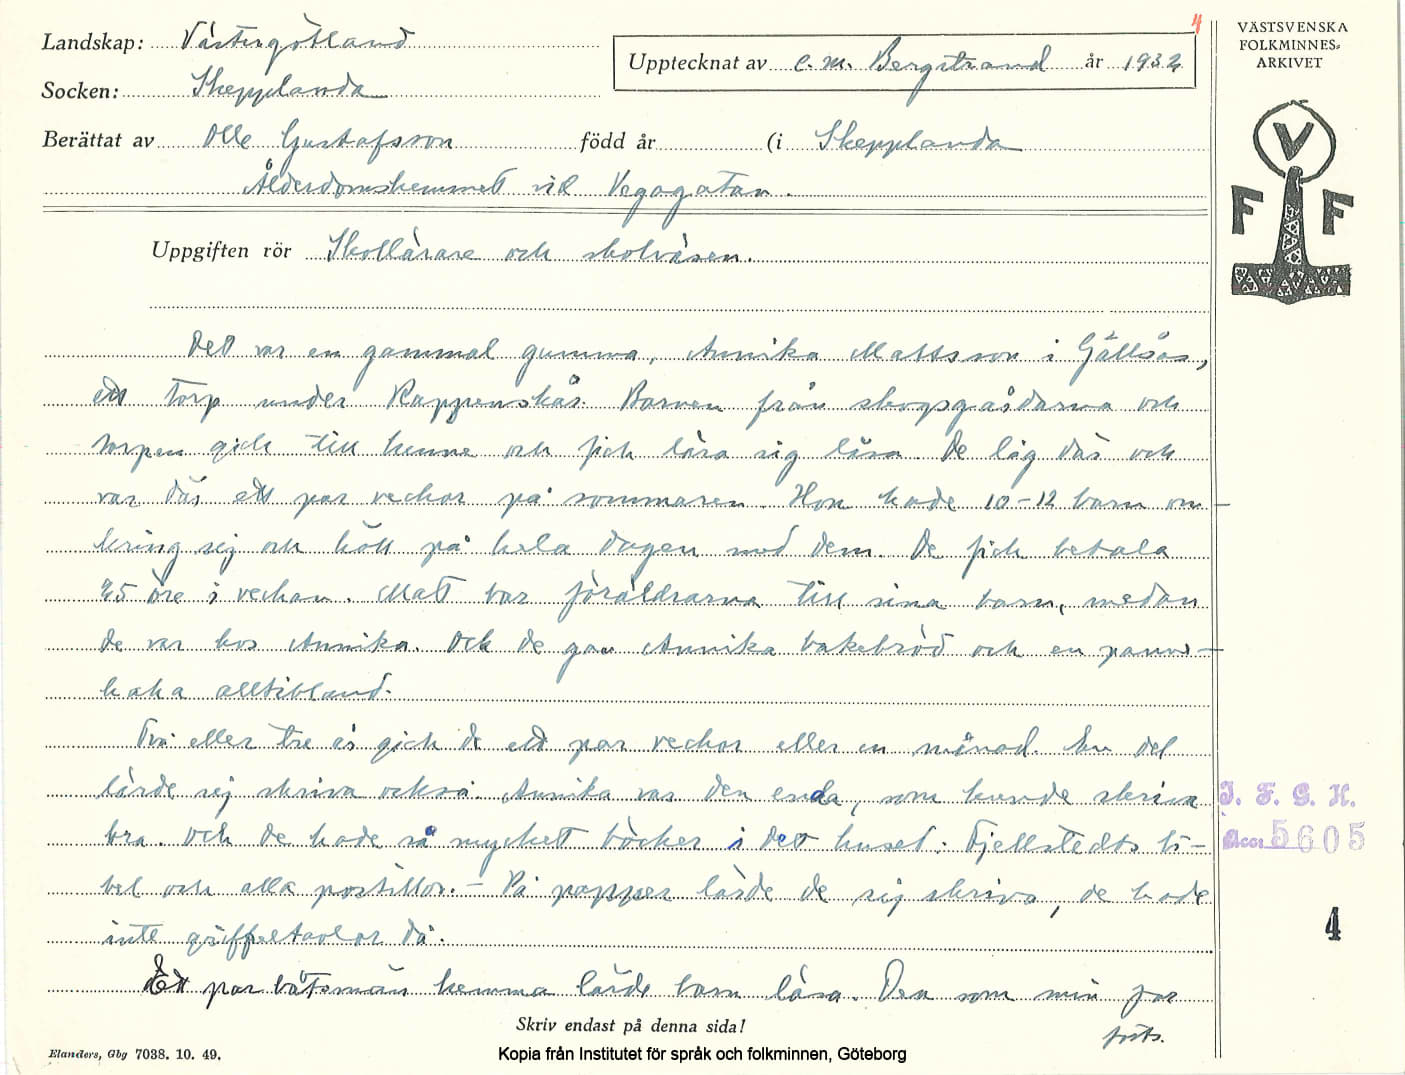 4
Landskap: Västergötland
Upptecknat av C. M. Bergstrand år 1932
VÄSTSVENSKA
FOLKMINNES-
ARKIVET
Socken: Skepplanda
Berättat av Olle Gustafsson född år (i Skepplanda
Ålderdomshemmet vid Vegagatan.
V
F F
Uppgiften rör Skollärare och skolväsen.
Det var en gammal gumma, Annika Mattsson i Gällsås,
ett torp under Rappenskår. Barnen från skogsgårdarna och
torpen gick till henne och fick lära sig läsa. De låg där och
var där ett par veckor på sommaren. Hon hade 10-12 barn om-
kring sej och höll på hela dagen med dem. De fick betala
25 öre i veckan. Mat bar föräldrarna till sina barn, medan
de var hos Annika. Och de gav Annika bakebröd och en pann-
kaka alltibland.
Två eller tre år gick de ett par veckor eller en månad. En del
lärde sej skriva också. Annika var den enda, som kunde skriva
bra. Och de hade så mycket böcker i det huset: Fjellstedts bi-
bel och alla postillor. - På papper lärde de sig skriva, de hade
inte griffeltavlor då.
Ett par båtsmän hemma lärde barn läsa. Den som min far
forts.
J. F. G. H.
Acc: 5605
4
Skriv endast på denna sida!
Elanders, Gbg 7038. 10. 49.
Kopia från Institutet för språk och folkminnen, Göteborg